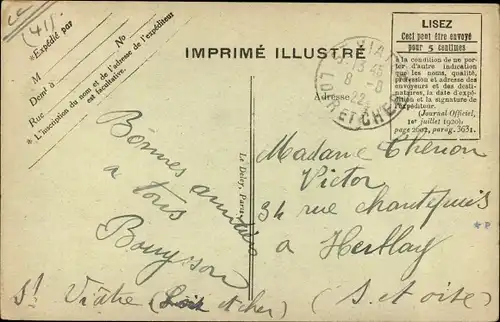 (41).
*Expédié par
M
Demt à
Rue
No
* L'inscription du nom et de l'adresse de l'expéditeur
est facultative.
IMPRIMÉ ILLUSTRÉ
LISEZ
Ceci peut être envoyé
pour 5 centimes
à la condition de ne por-
ter d'autre indication
que les noms, qualité,
profession et adresse des
envoyeurs et des desti-
nataires, la date d'expé-
dition et la signature de
l'expéditeur.
(Journal Officiel,
1er juillet 1920).
parag. 3631.
VIA
8 -8
22
LOIR ET CHER
Adresse
Bonnes amitiés
a tous
Le Deley, Paris
Madame Thenon
Victor
34 rue chantepuis
a Herblay
St Viâtre (Loir et cher) (S. et oise)